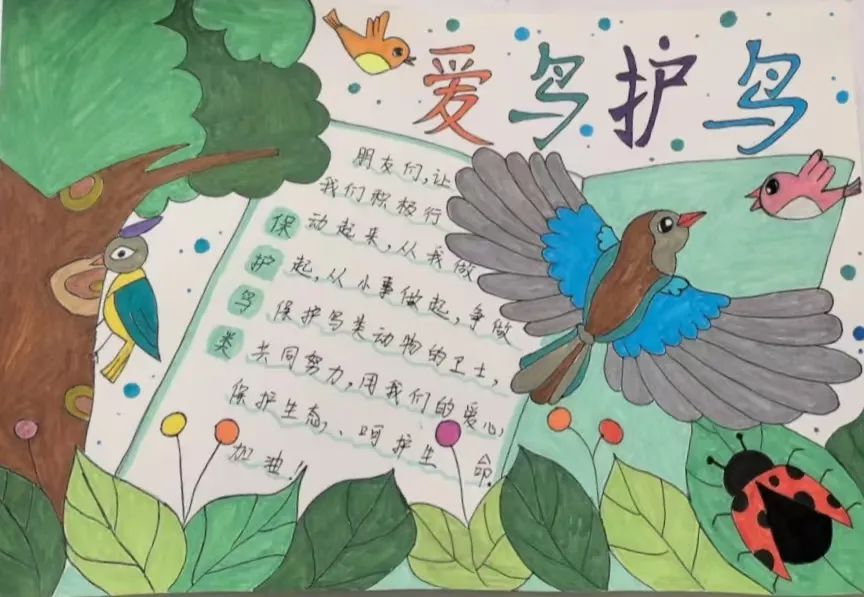 爱鸟护鸟
保护鸟类
朋友们,让
我们积极行
动起来,从我做
起,从小事做起,争做
保护鸟类动物的卫士,
共同努力,用我们的爱心,
保护生态,、呵护生命!
加油!